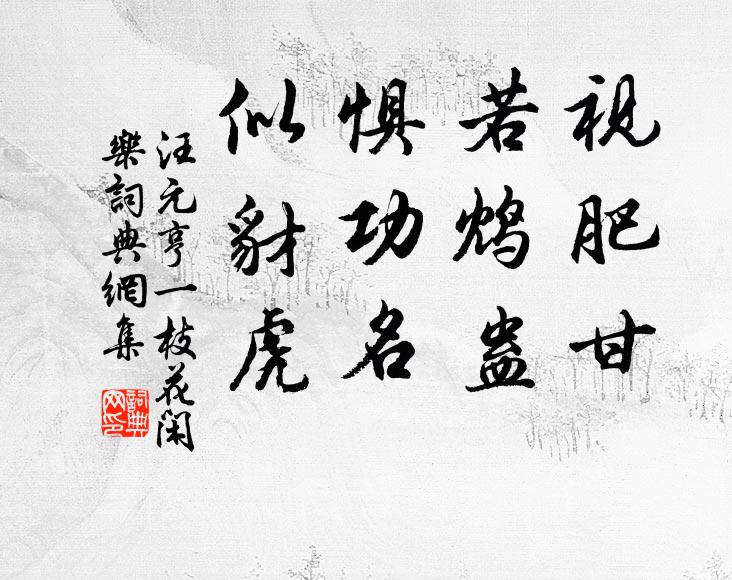 視肥甘
若鴆蛊
惧功名
似豺虎
汪元亨一枝花闲
樂詞典網集
詞典
网印